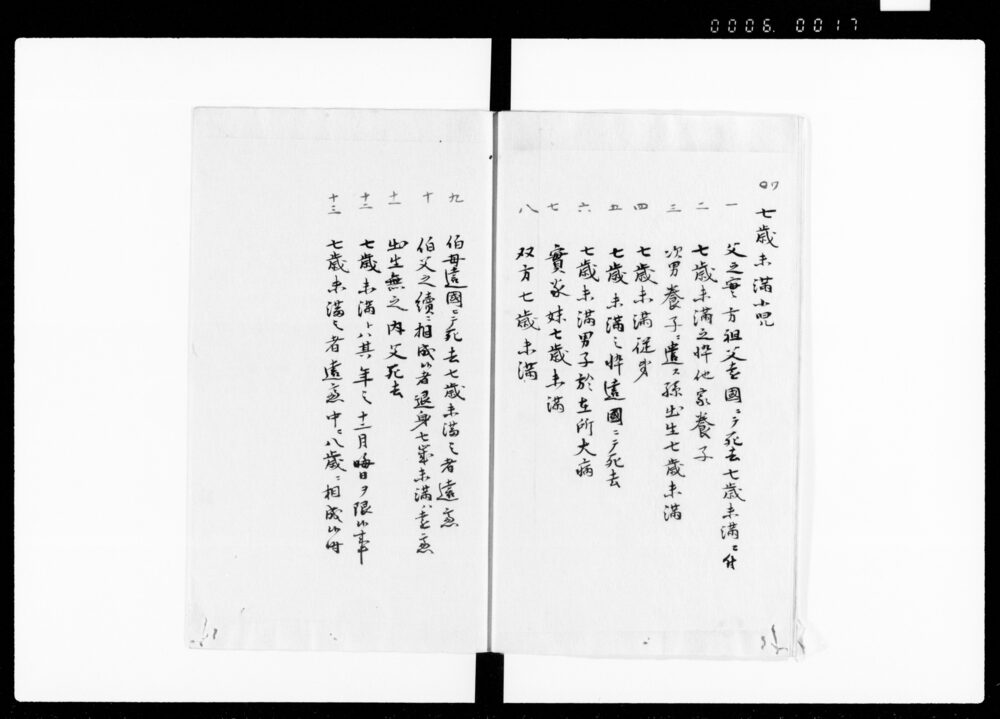 0006. 0017
七歳未満小児
一 父之実方祖父遠国ニテ死去七歳未満ニ付
二 七歳未満之忰他家養子
三 次男養子ニ遣ス孫出生七歳未満
四 七歳未満従弟
五 七歳未満之忰遠国ニテ死去
六 七歳未満男子於在所大病
七 實家妹七歳未満
八 双方七歳未満
九 伯母遠國ニテ死去七歳未満之者遠慮
十 伯父之續ニ相成候者退身七歳未満ハ遠慮
十一 出生無之内父死去
十二 七歳未満トハ其年之十二月晦日ヲ限候事
十三 七歳未満之者遠慮中ニ八歳ニ相成候節